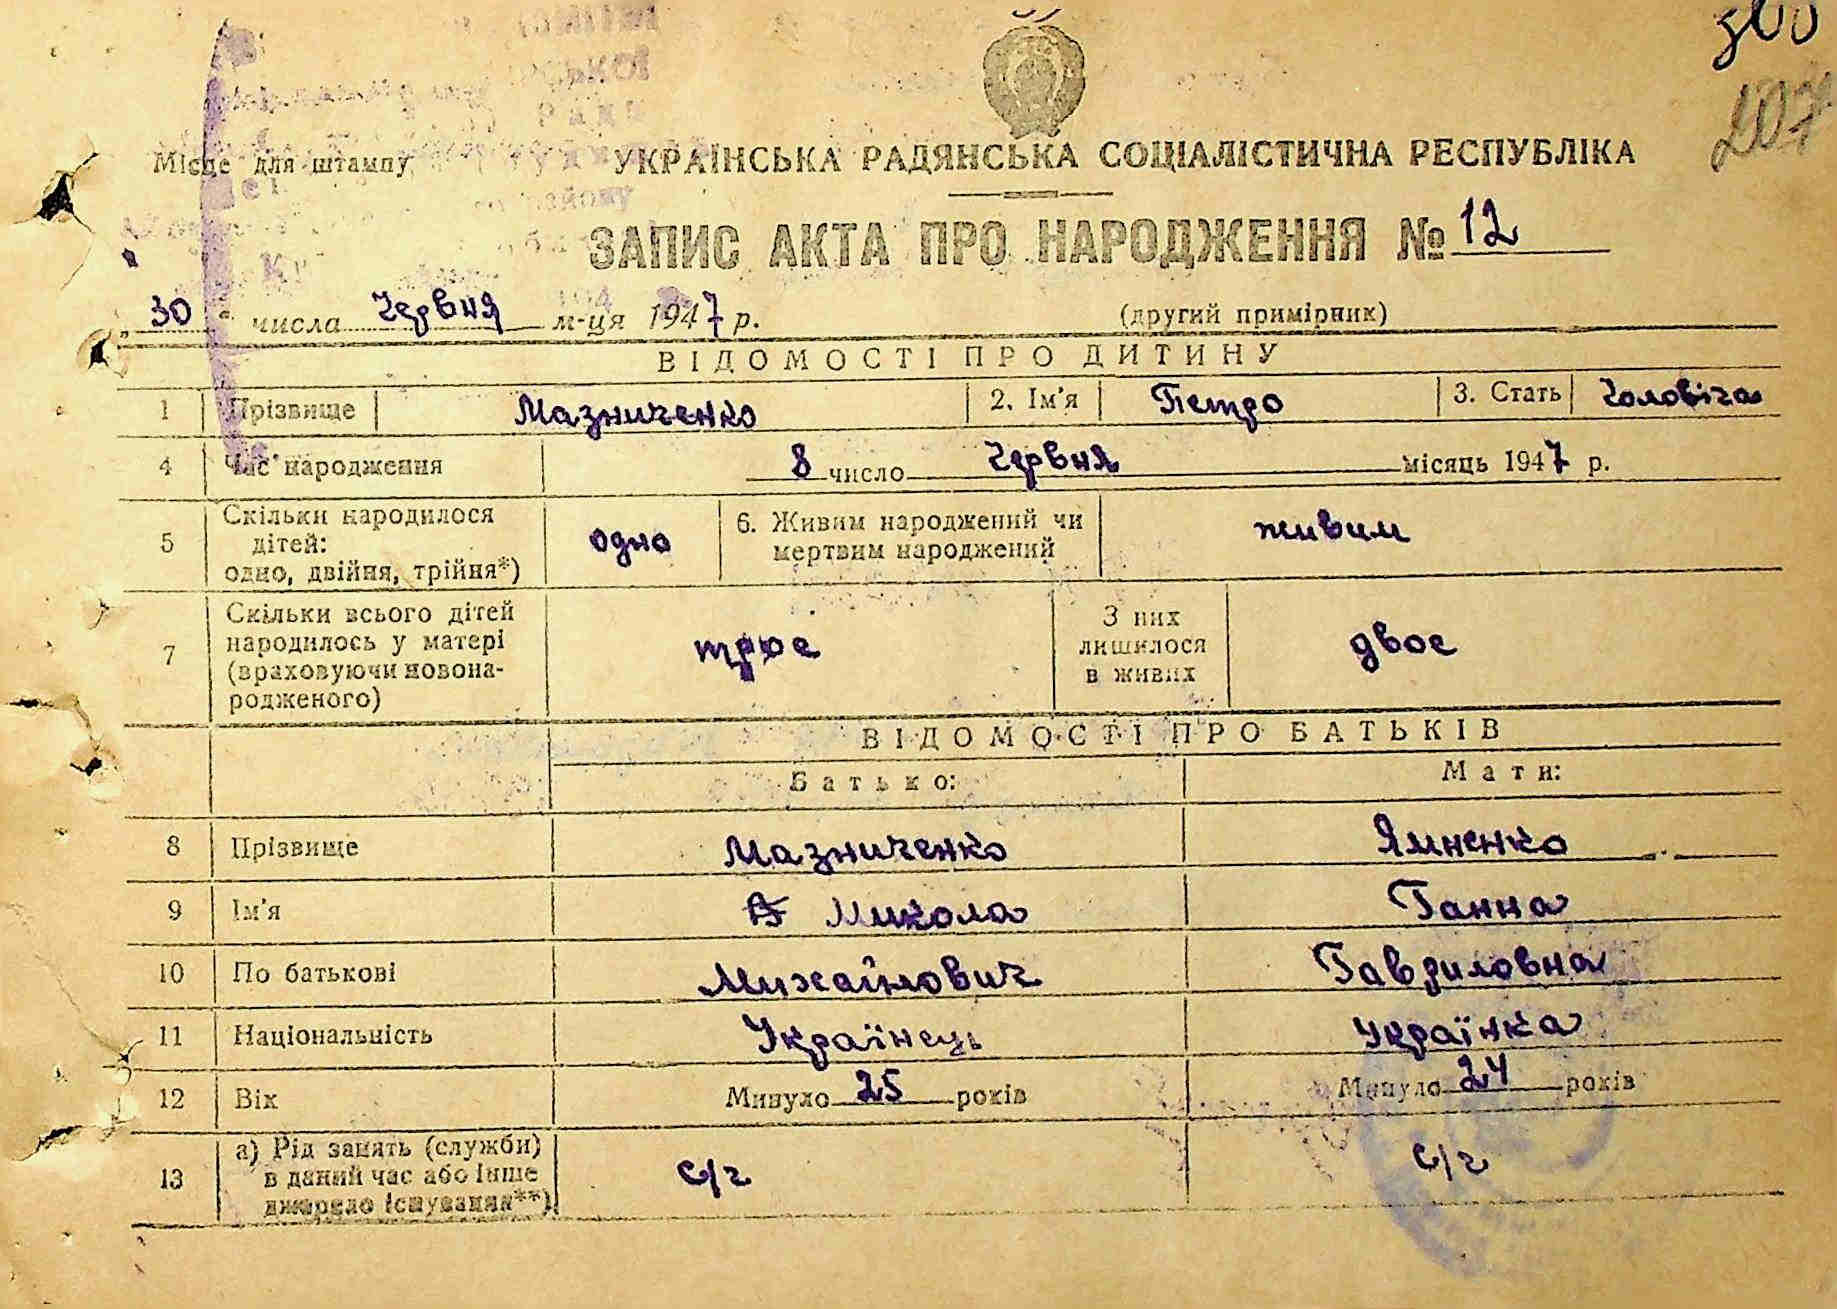 360
207
Місце для штампу
УКРАЇНСЬКА РАДЯНСЬКА СОЦІАЛІСТИЧНА РЕСПУБЛІКА
ЗАПИС АКТА ПРО НАРОДЖЕННЯ № 12
„30" числа Червня м-ця 1947 р. (другий примірник)
ВІДОМОСТІ ПРО ДИТИНУ
1 Прізвище Мазниченко 2. Ім'я Петро 3. Стать Чоловіча
4 Час народження 8 число Червня місяць 1947 р.
5 Скільки народилося дітей: одно, двійня, трійня*) одно 6. Живим народжений чи мертвим народжений живим
7 Скільки всього дітей народилось у матері (враховуючи новонародженого) троє З них лишилося в живих двоє
ВІДОМОСТІ ПРО БАТЬКІВ
Батько: Мати:
8 Прізвище Мазниченко Ямненко
9 Ім'я Микола Ганна
10 По батькові Михайлович Гавриловна
11 Національність Українець Українка
12 Вік Минуло 25 років Минуло 24 років
13 а) Рід занять (служби) в даний час або інше джерело існування**) с/г с/г